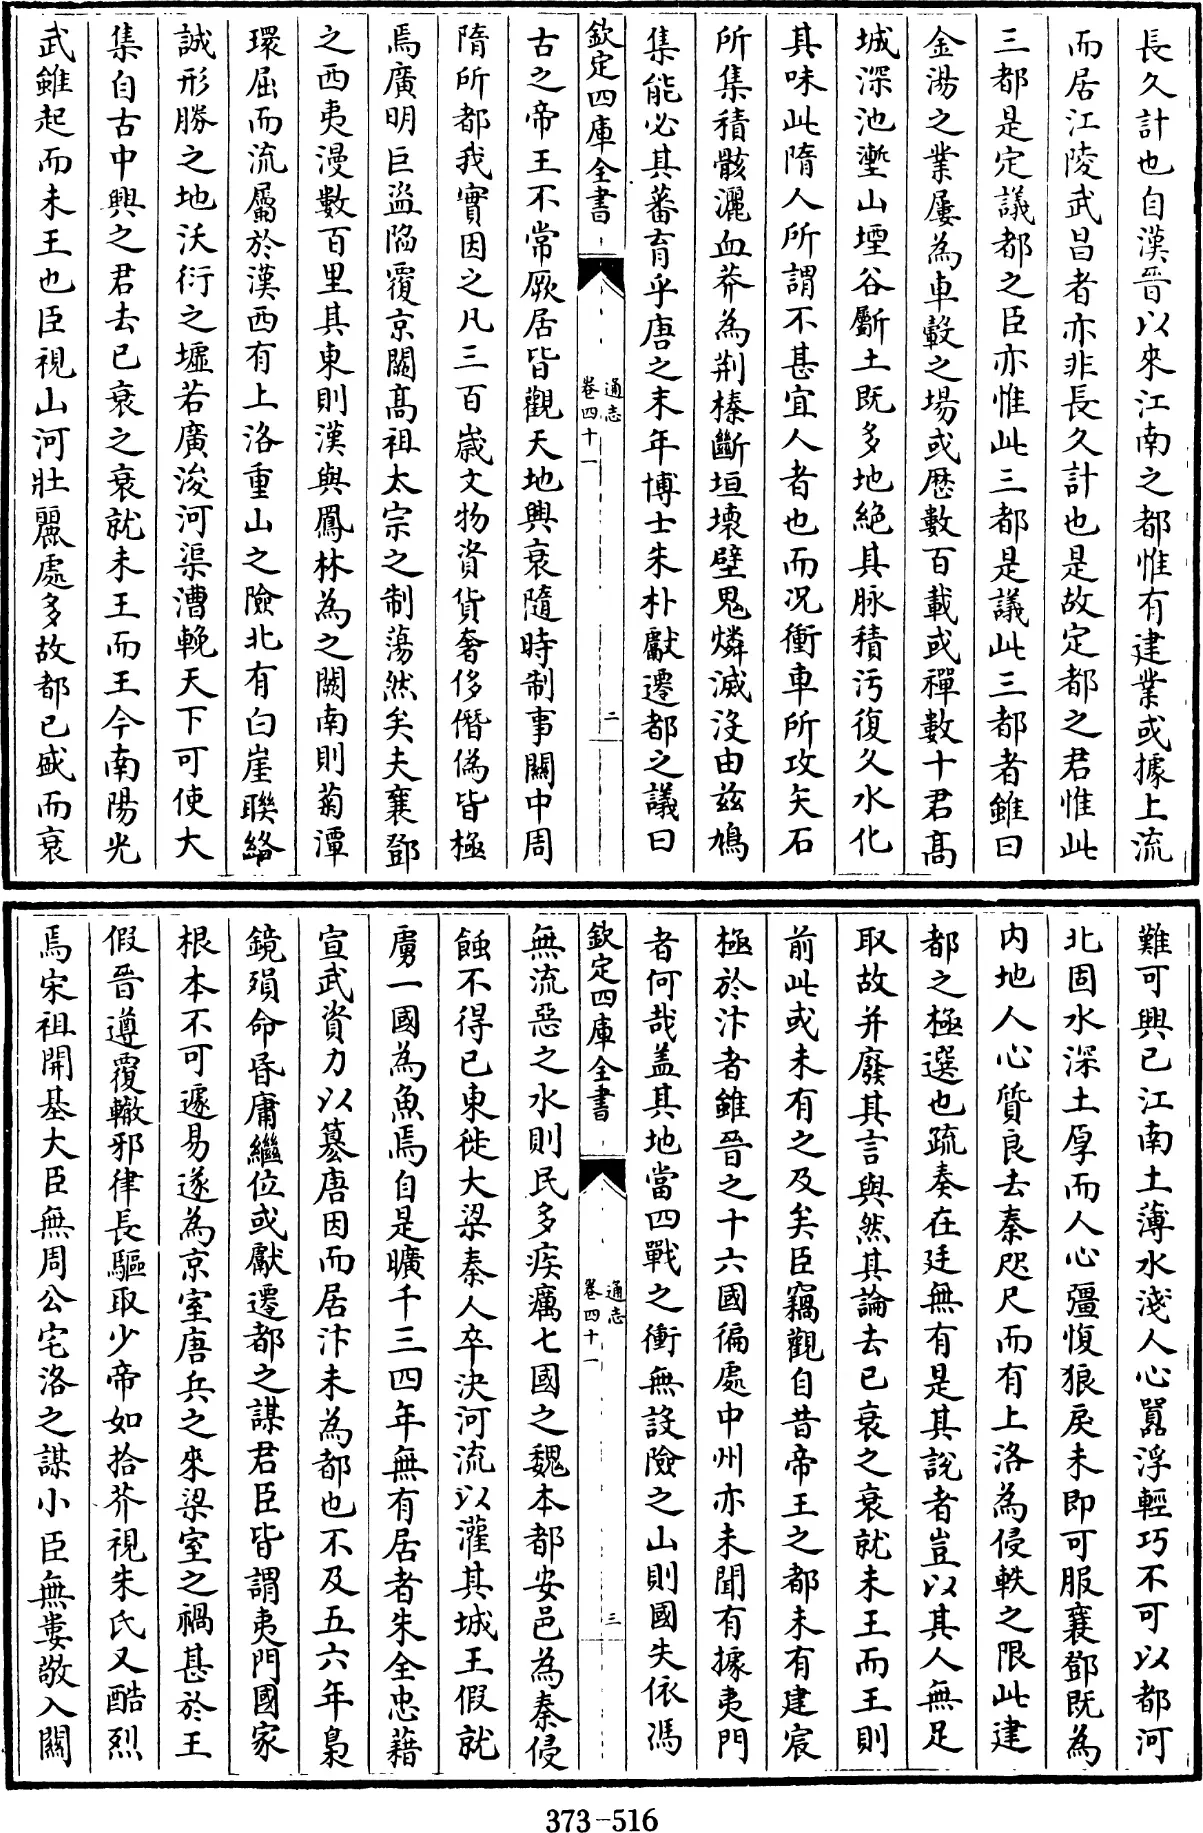 長久計也自漢晉以來江南之都惟有建業或據上流
而居江陵武昌者亦非長久計也是故定都之君惟此
三都是定議都之臣亦惟此三都是議此三都者雖曰
金湯之業屢為車轂之場或歴數百載或禪數十君髙
城深池塹山堙谷斸土既多地絶其脉積污復久水化
其味此隋人所謂不甚宜人者也而况衝車所攻矢石
所集積骸灑血莽為荆榛斷垣壊壁鬼燐滅沒由兹鳩
集能必其蕃育乎唐之末年博士朱朴獻遷都之議曰
欽定四庫全書
通志
卷四十一
二
古之帝王不常厥居皆觀天地興衰隨時制事關中周
隋所都我實因之凡三百嵗文物資貨奢侈僭偽皆極
焉廣明巨盗陷覆京闕髙祖太宗之制蕩然矣夫襄鄧
之西夷漫數百里其東則漢輿鳳林為之闕南則菊潭
環屈而流屬於漢西有上洛重山之險北有白崖聯絡
誠形勝之地沃衍之墟若廣浚河渠漕輓天下可使大
集自古中興之君去已衰之衰就未王而王今南陽光
武雖起而未王也臣視山河壯麗處多故都已盛而衰
難可興已江南土薄水淺人心囂浮輕巧不可以都河
北固水深土厚而人心彊愎狼戾未即可服襄鄧既為
内地人心質良去秦咫尺而有上洛為侵軼之限此建
都之極選也疏奏在廷無有是其說者豈以其人無足
取故并廢其言與然其論去已衰之衰就未王而王則
前此或未有之及矣臣竊觀自昔帝王之都未有建宸
極於汴者雖晉之十六國徧處中州亦未聞有據夷門
者何哉盖其地當四戰之衝無設險之山則國失依馮
欽定四庫全書
通志
卷四十一
三
無流惡之水則民多疾癘七國之魏本都安邑為秦侵
蝕不得已東徙大梁秦人卒決河流以灌其城王假就
虜一國為魚焉自是曠千三四年無有居者朱全忠藉
宣武資力以簒唐因而居汴未為都也不及五六年梟
鏡殞命昏庸繼位或獻遷都之謀君臣皆謂夷門國家
根本不可遽易遂為京室唐兵之來梁室之禍甚於王
假晉遵覆轍邪律長驅取少帝如拾芥視朱氏又酷烈
焉宋祖開基大臣無周公宅洛之謀小臣無婁敬入關
373-516